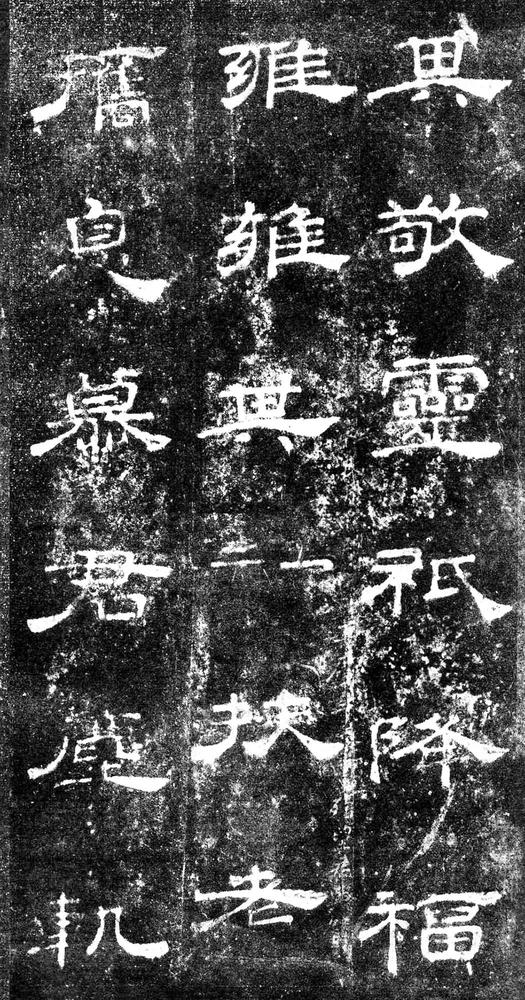 其敬靈祇降福
雍雍其扶老
攜息慕君塵軌